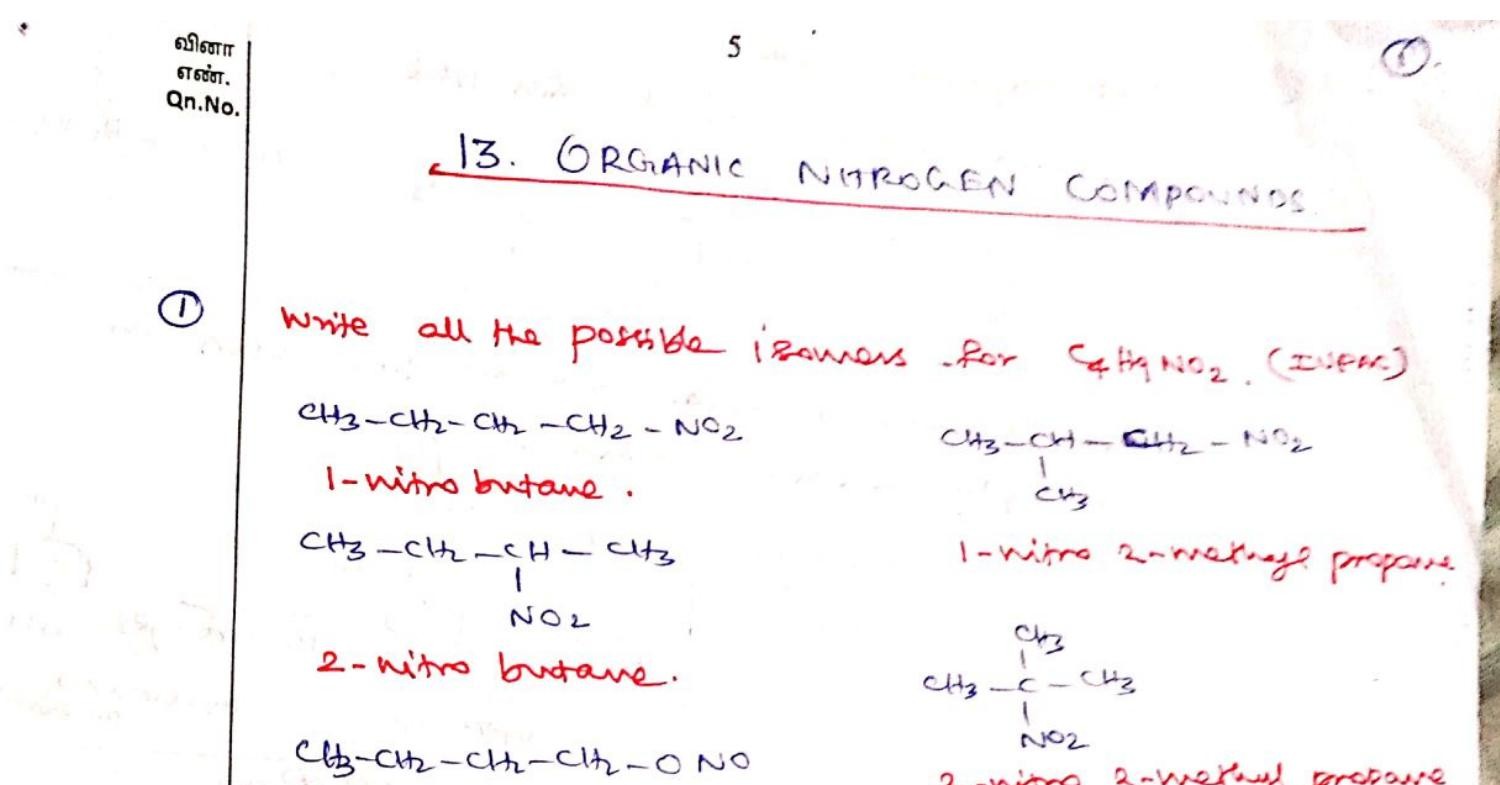 வினா
எண்.
Qn.No.
5
①
13. ORGANIC NITROGEN COMPOUNDS
①
Write all the possible isomers for C4H9NO2. (IUPAC)
CH3-CH2-CH2-CH2-NO2
1-nitro butane.
CH3-CH2-CH-CH3
NO2
2-nitro butane.
CH3-CH2-CH2-CH2-O NO
CH3-CH-CH2-NO2
CH3
1-nitro 2-methyl propane.
CH3
CH3-C-CH3
NO2
2-nitro 2-methyl propane